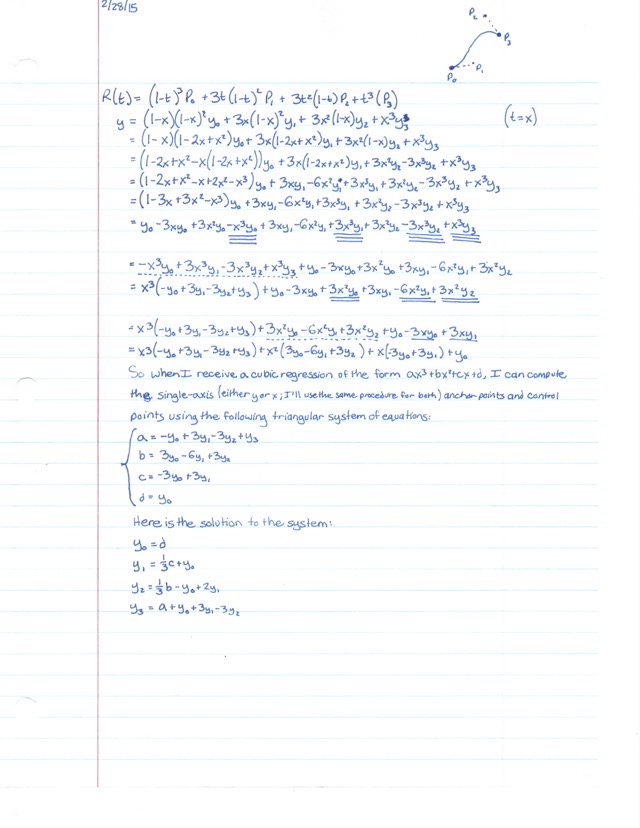 2/28/15
P₂
P₃
P₁
P₀
R(t) = (1-t)³P₀ + 3t(1-t)²P₁ + 3t²(1-t)P₂ + t³(P₃)
y = (1-x)(1-x)²y₀ + 3x(1-x)²y₁ + 3x²(1-x)y₂ + x³y₃ (t=x)
= (1-x)(1-2x+x²)y₀ + 3x(1-2x+x²)y₁ + 3x²(1-x)y₂ + x³y₃
= (1-2x+x²-x(1-2x+x²))y₀ + 3x(1-2x+x²)y₁ + 3x²y₂ - 3x³y₂ + x³y₃
= (1-2x+x²-x+2x²-x³)y₀ + 3xy₁ - 6x²y₁ + 3x³y₁ + 3x²y₂ - 3x³y₂ + x³y₃
= (1-3x+3x²-x³)y₀ + 3xy₁ - 6x²y₁ + 3x³y₁ + 3x²y₂ - 3x³y₂ + x³y₃
= y₀ - 3xy₀ + 3x²y₀ - x³y₀ + 3xy₁ - 6x²y₁ + 3x³y₁ + 3x²y₂ - 3x³y₂ + x³y₃
= -x³y₀ + 3x³y₁ - 3x³y₂ + x³y₃ + y₀ - 3xy₀ + 3x²y₀ + 3xy₁ - 6x²y₁ + 3x²y₂
= x³(-y₀+3y₁-3y₂+y₃) + y₀ - 3xy₀ + 3x²y₀ + 3xy₁ - 6x²y₁ + 3x²y₂
= x³(-y₀+3y₁-3y₂+y₃) + 3x²y₀ - 6x²y₁ + 3x²y₂ + y₀ - 3xy₀ + 3xy₁
= x³(-y₀+3y₁-3y₂+y₃) + x²(3y₀-6y₁+3y₂) + x(-3y₀+3y₁) + y₀
So when I receive a cubic regression of the form ax³+bx²+cx+d, I can compute
the single-axis (either y or x; I'll use the same procedure for both) anchor points and control
points using the following triangular system of equations:
a = -y₀+3y₁-3y₂+y₃
b = 3y₀-6y₁+3y₂
c = -3y₀+3y₁
d = y₀
Here is the solution to the system:
y₀ = d
y₁ = ⅓c+y₀
y₂ = ⅓b-y₀+2y₁
y₃ = a+y₀+3y₁-3y₂